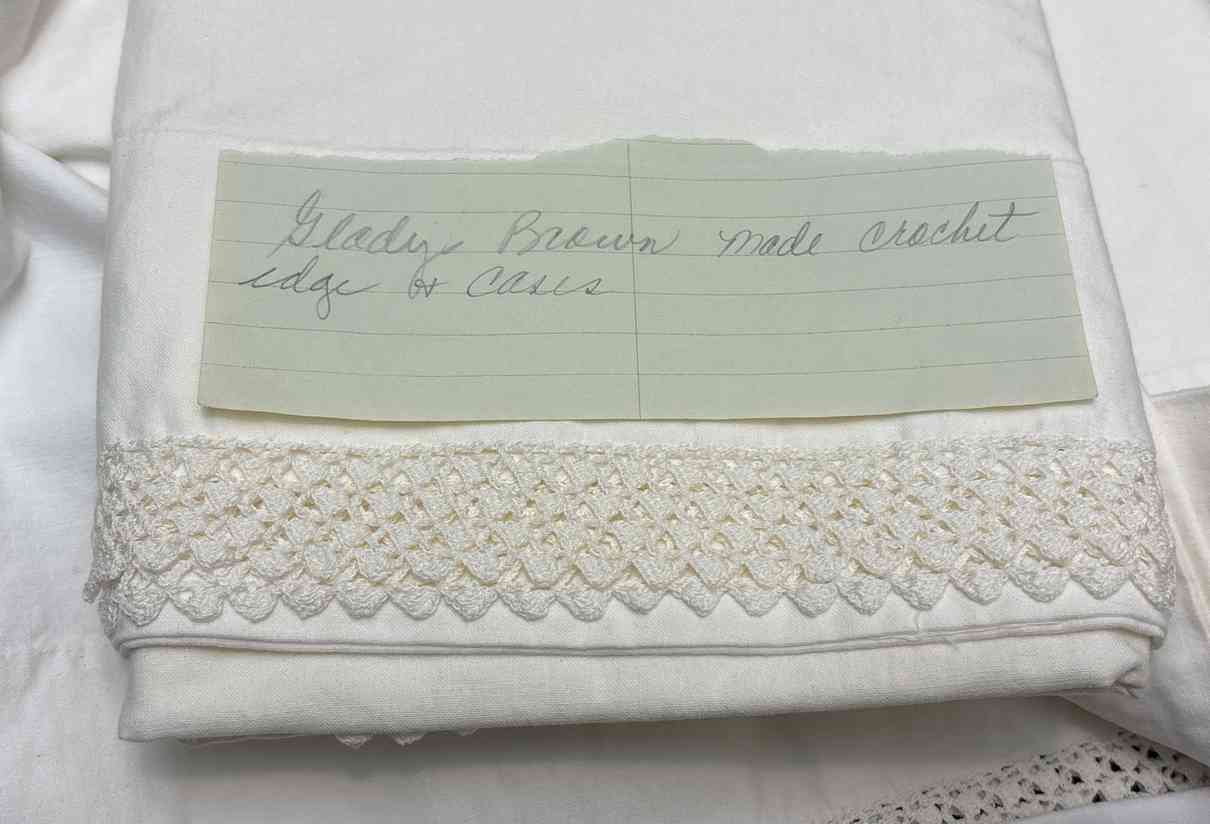 Gladys Brown made crochet
edge & cases